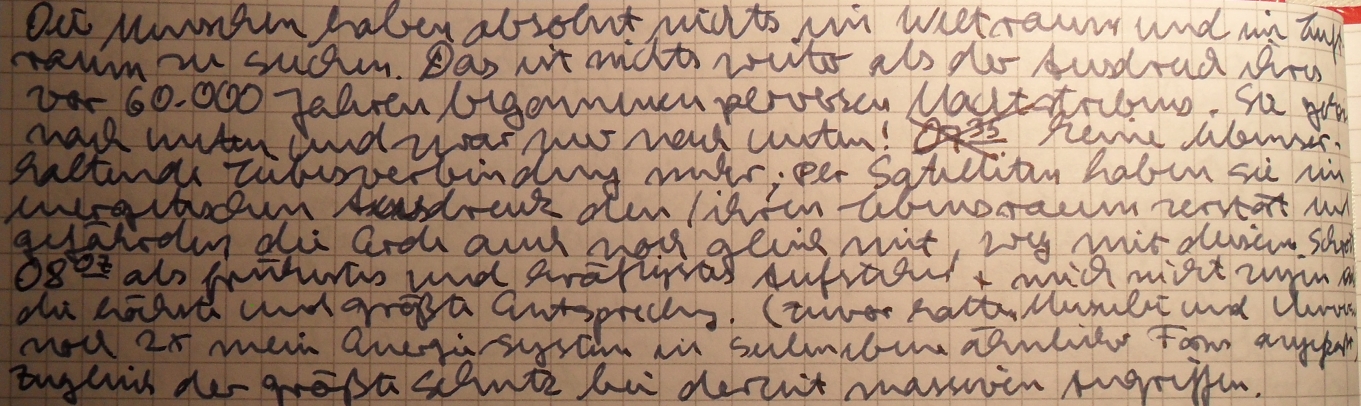 Die Menschen haben absolut nichts im Weltraum und im Luft-
raum zu suchen. Das ist nichts weiter als der Ausdruck ihres
vor 60.000 Jahren begonnenen perversen Machtstrebens. Sie gehen
nach unten und zwar nur nach unten! Keine lebenser-
haltende Liebesverbindung mehr; per Satelliten haben sie im
energetischen Ausdruck den / ihren Lebensraum zerstört und
gefährden die Erde auch noch gleich mit, weg mit diesem
08 07 als frühestes und kräftigstes Aufstehen + mich nicht
die höchste und größte Entsprechg. (Zuvor hatten und
noch 2x mein Energiesystem in ähnlicher Form
Zugleich der größte Schutz bei derzeit massiven Angriffen.